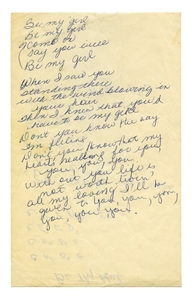 Be my girl
Be my girl
Come on
Say you will
Be my girl
When I saw you
standing there
with the wind blowing in
your hair
then I knew that you'd
have to be my girl
Don't you know the way
Im feeling
Don't you know that my
hearts healing for you,
you, you, you
With out you life is
not worth liven,
all my loving I'll be
given to you, you, you,
you, you, you.